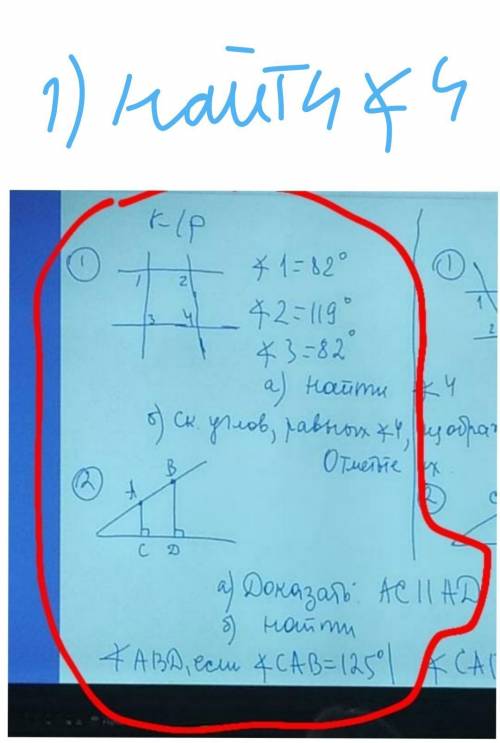 1) найти ∡ 4
К-/Р
① 1 2 3 4 ∡ 1 = 82°
∡ 2 = 119°
∡ 3 = 82°
а) найти ∡ 4
б) Ск. углов, равных ∡ 4,
Отметьте их.
② A B C D
а) Доказать: AC || AD
б) найти
∡ ABD, если ∡ CAB = 125°
① 1 2
② C
∡ CA